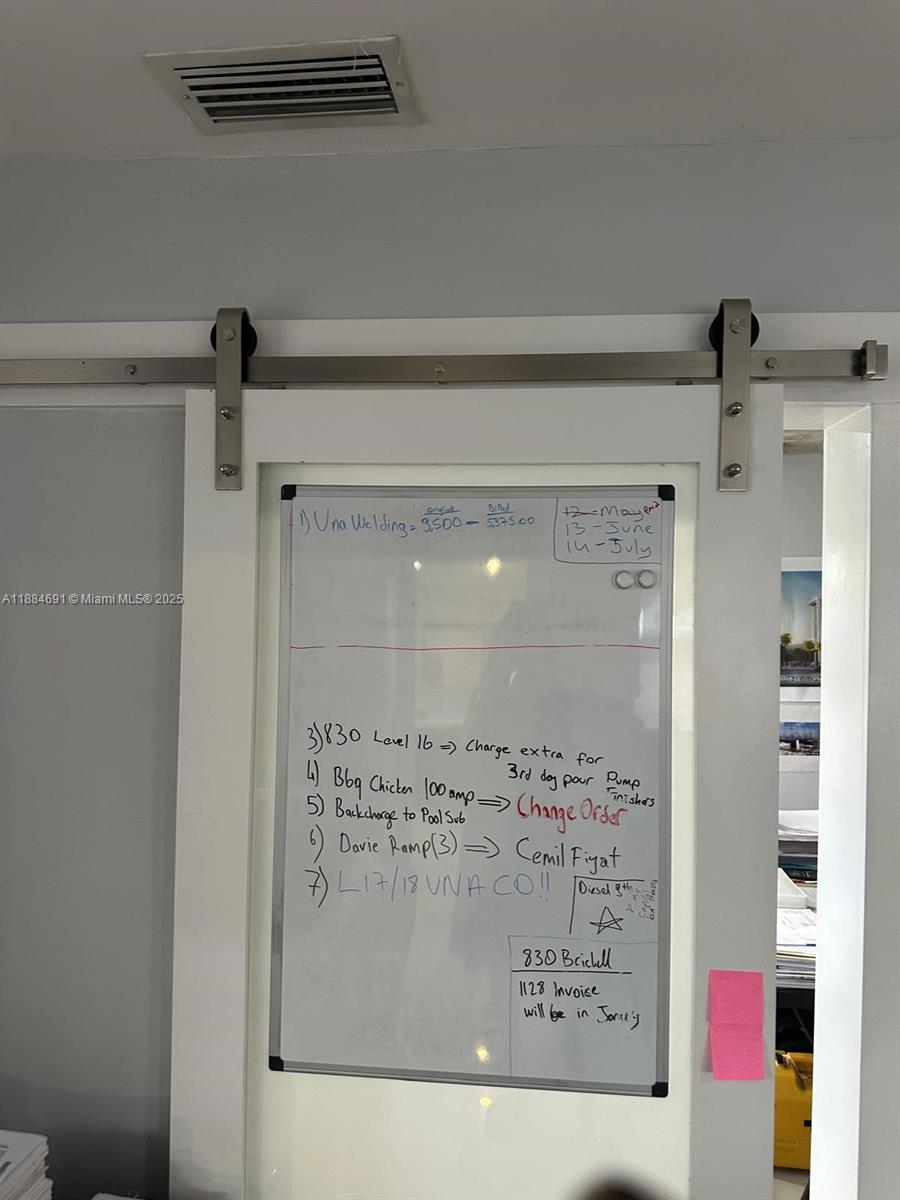 Original Billed
1) Una Welding = 9,500 - 5,375.00
12 - May
13 - June
14 - July
A11884691 © Miami MLS® 2025
3) 830 Level 16 => Charge extra for
3rd day pour Pump
Finishers
4) Bbq Chicken 100 amp => Change Order
5) Backcharge to Pool Sub
6) Davie Ramp (3) => Cemil Fiyat
7) L17/18 UNA CO!!
Diesel 8th
830 Brickell
1128 Invoice
will be in